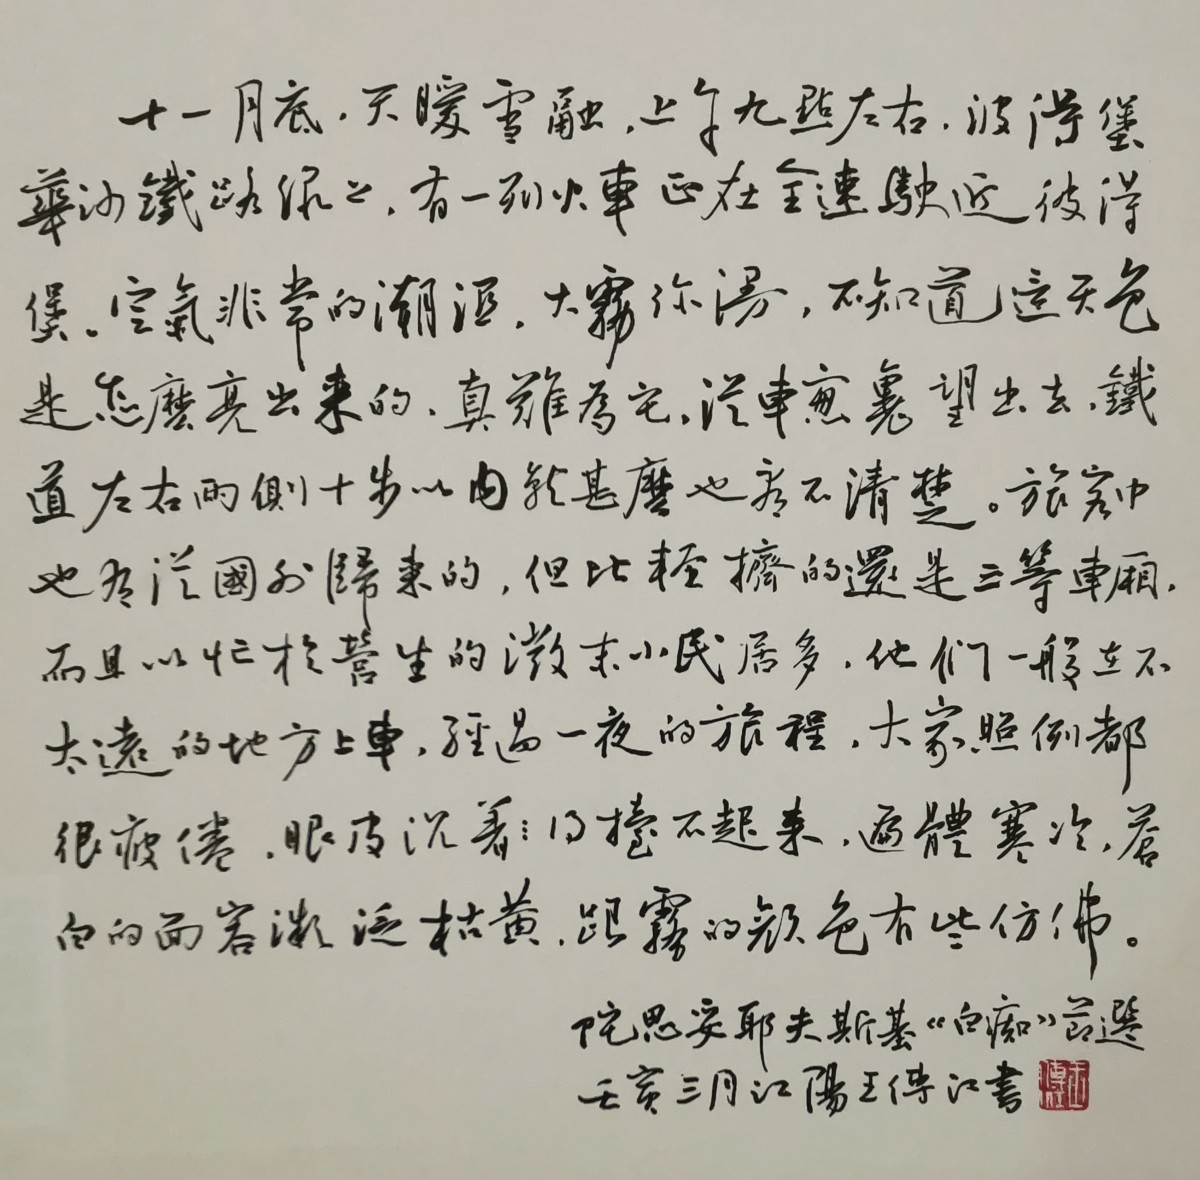 十一月底，天暖雪融，上午九點左右，彼得堡
華沙鐵路線上，有一列火車正在全速駛近彼得
堡。空氣非常的潮濕，大霧弥漫，不知道這天色
是怎麼亮出來的，真難為它，從車窓裏望出去，鐵
道左右兩側十步以內就甚麼也看不清楚。旅客中
也有從國外歸來的，但比較擠的還是三等車厢，
而且以忙於營生的微末小民居多，他們一般在不
太遠的地方上車，經過一夜的旅程，大家照例都
很疲倦，眼皮沉着⋮得擡不起來，遍體寒冷，蒼
白的面容漸泛枯黄，跟霧的顔色有些仿佛。
陀思妥耶夫斯基《白痴》節選
壬寅三月江陽王傳江書